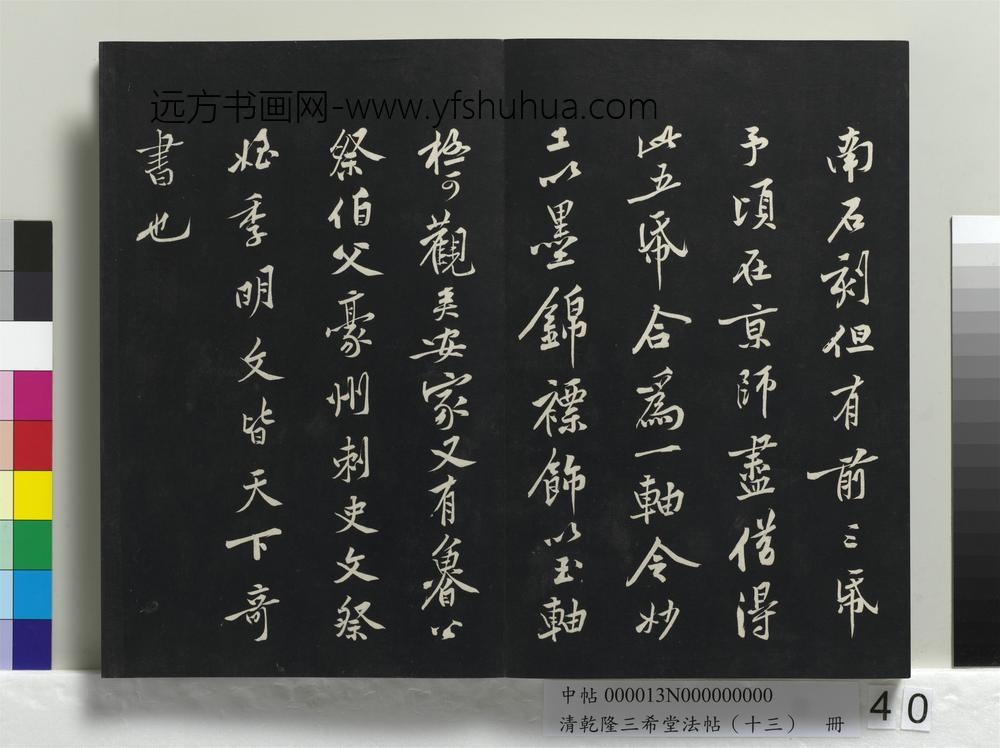 南石刻但有前三帋
予頃在京師盡借得
此五帋合為一軸令妙
工以墨錦褾飾以玉軸
極可觀安家又有魯公
祭伯父豪州刺史文祭
姪季明文皆天下奇
書也
远方书画网-www.yfshuhua.com
中帖 000013N000000000
清乾隆三希堂法帖（十三） 冊
40